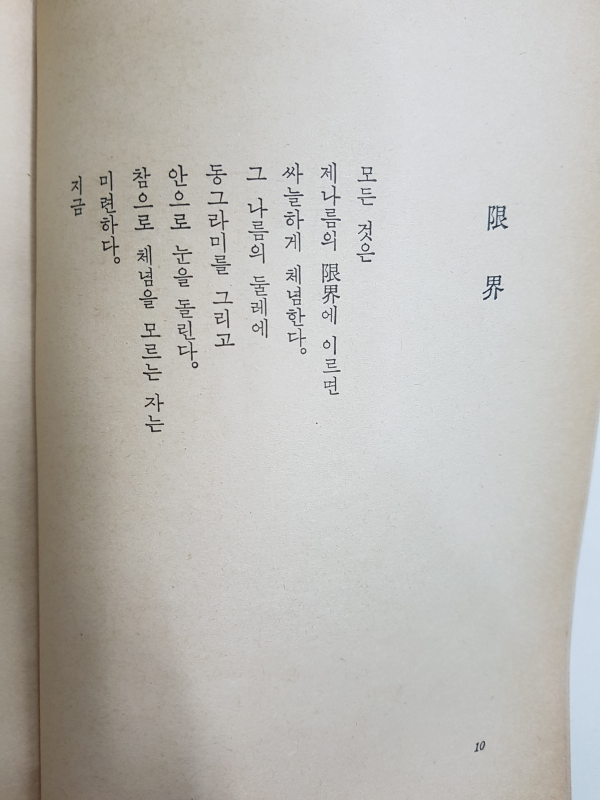 限界
모든 것은
제나름의 限界에 이르면
싸늘하게 체념한다。
그 나름의 둘레에
동그라미를 그리고
안으로 눈을 돌린다。
참으로 체념을 모르는 자는
미련하다。
지금
10